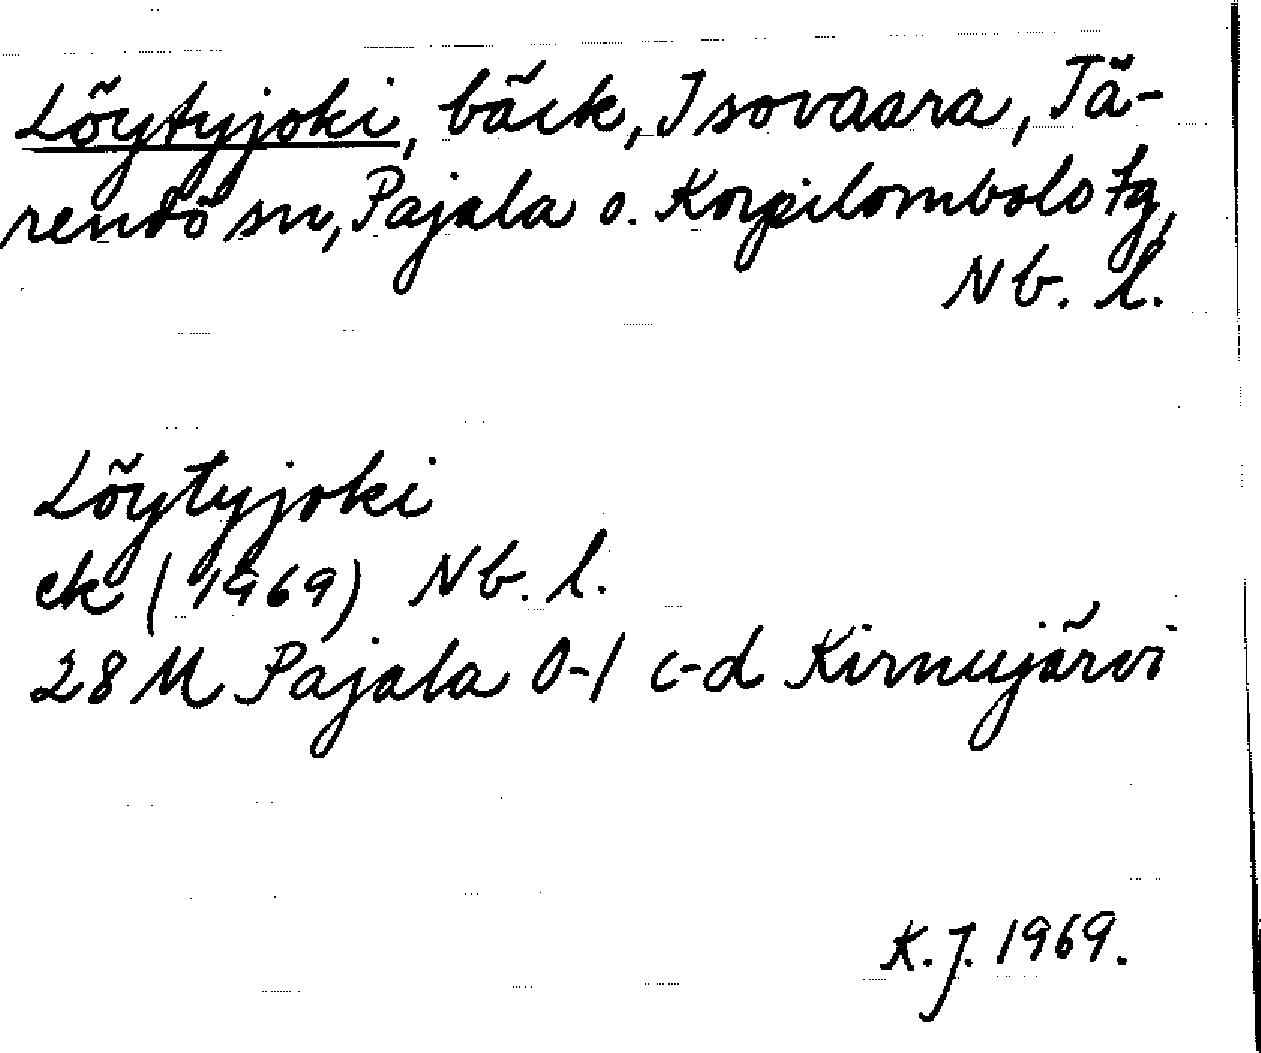 Löytyjoki, bäck, Isovaara, Tä-
rendö sn, Pajala o. Korpilombolo tg,
Nb. l.
Löytyjoki
ek (1969) Nb. l.
28 M Pajala 0-1 c-d Kirnujärvi
K.J. 1969.